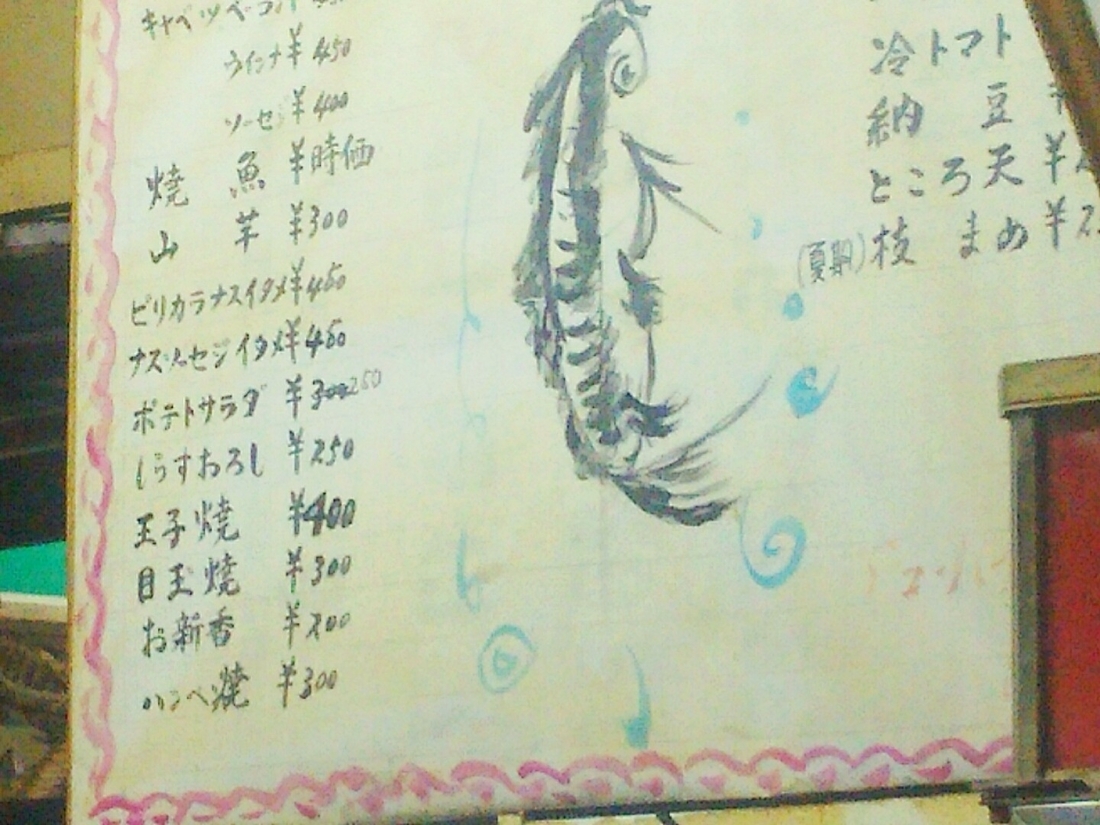 キャベツベーコン
ウインナ¥450
ソーセジ¥400
焼魚 ¥時価
山芋 ¥300
ピリカラナスイタメ¥450
ナスソーセジイタメ¥450
ポテトサラダ ¥300 250
しらすおろし ¥250
玉子焼 ¥400
目玉焼 ¥300
お新香 ¥200
ハンペン焼 ¥300
冷トマト
納豆
ところ天 ¥
(夏期)枝まめ ¥